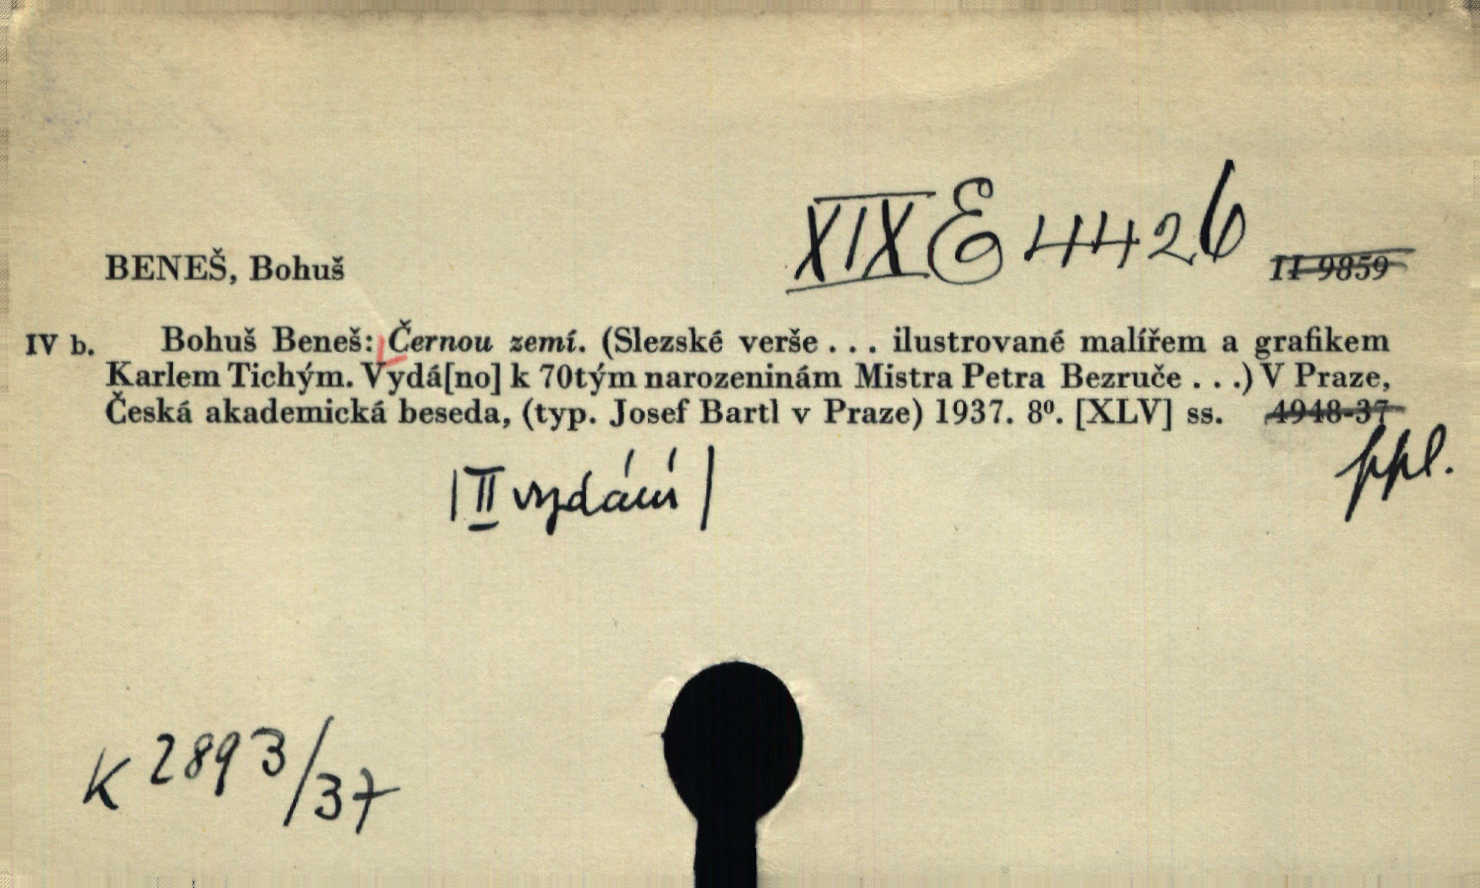 XIX E 4426
BENEŠ, Bohuš
II 9859
IV b. Bohuš Beneš: Černou zemí. (Slezské verše . . . ilustrované malířem a grafikem
Karlem Tichým. Vydá[no] k 70tým narozeninám Mistra Petra Bezruče . . .) V Praze,
Česká akademická beseda, (typ. Josef Bartl v Praze) 1937. 8⁰. [XLV] ss. 4948-37
ppl.
|II vydání|
K 2893/37